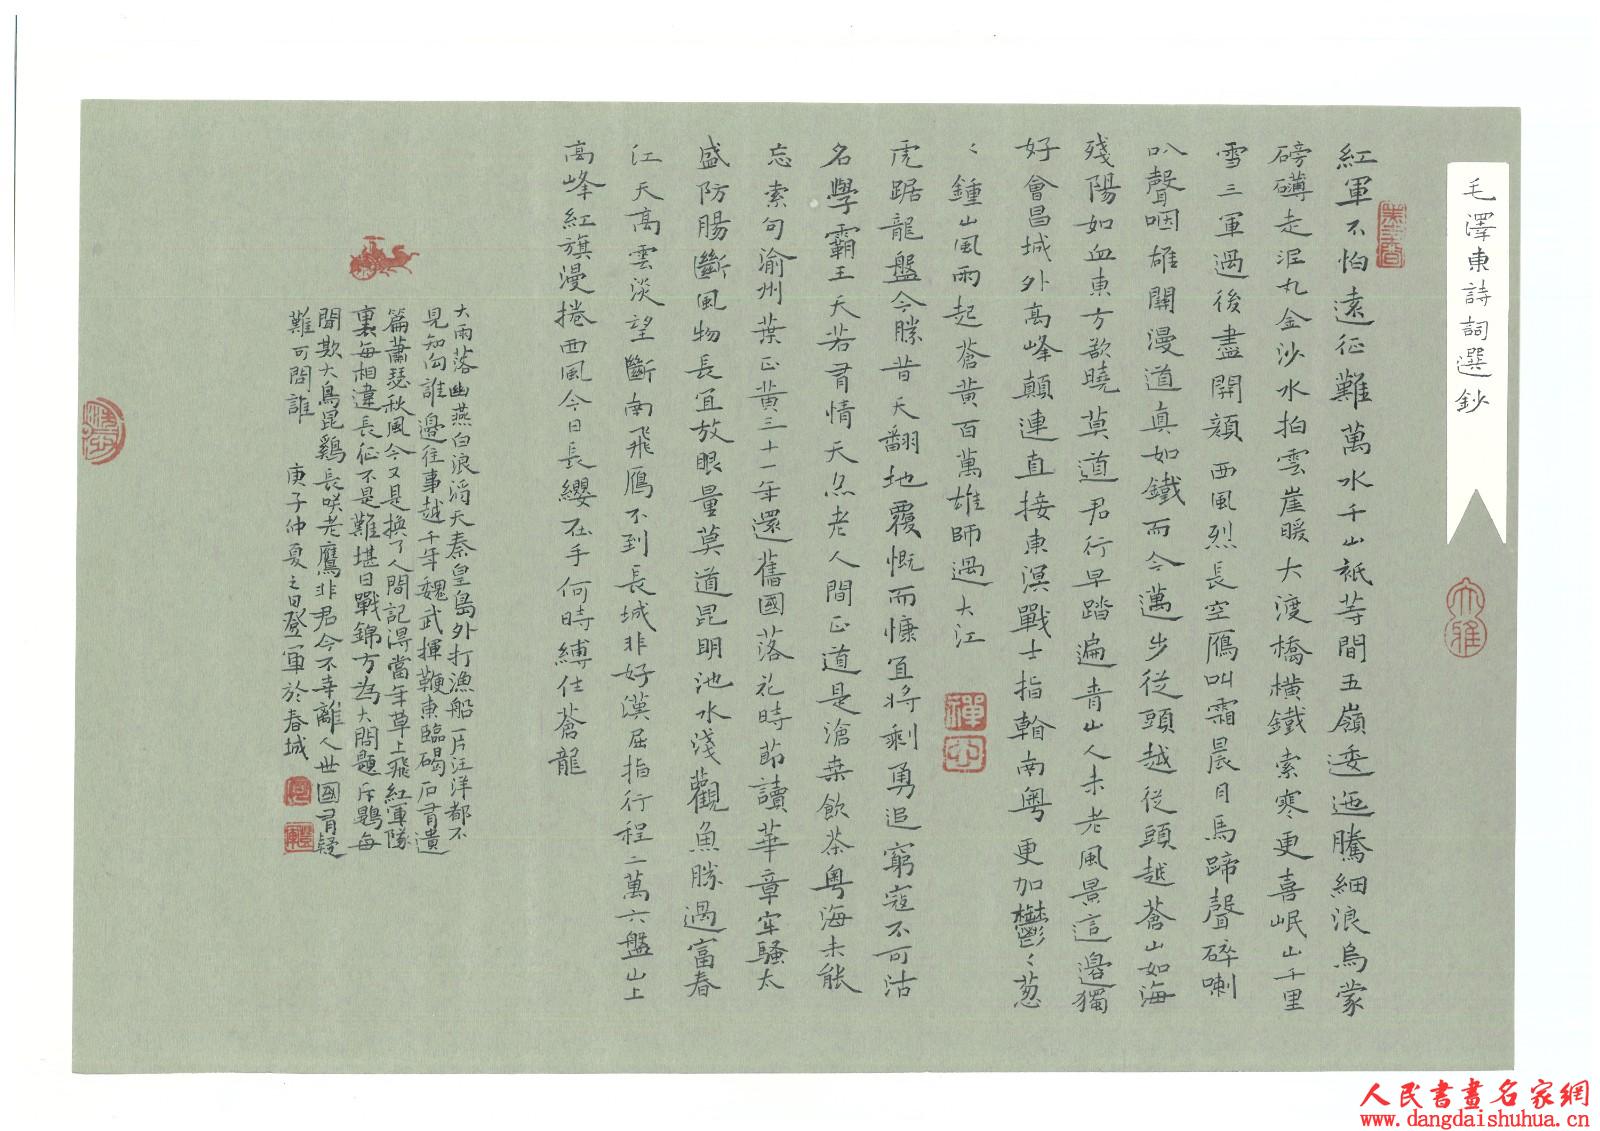 毛澤東詩詞選鈔
紅軍不怕遠征難萬水千山祇等間五嶺逶迤騰細浪烏蒙
磅礴走泥丸金沙水拍雲崖暖大渡橋橫鐵索寒更喜岷山千里
雪三軍過後盡開顏西風烈長空雁叫霜晨月馬蹄聲碎喇
叭聲咽雄關漫道真如鐵而今邁步從頭越從頭越蒼山如海
殘陽如血東方欲曉莫道君行早踏遍青山人未老風景這邊獨
好會昌城外高峰顛連直接東溟戰士指翰南粵更加鬱〻葱
〻鍾山風雨起蒼黃百萬雄師過大江
虎踞龍盤今勝昔天翻地覆慨而慷宜將剩勇追窮寇不可沽
名學霸王天若有情天亦老人間正道是滄桑飲茶粵海未能
忘索句渝州葉正黃三十一年還舊國落花時節讀華章牢騷太
盛防腸斷風物長宜放眼量莫道昆明池水淺觀魚勝過富春
江天高雲淡望斷南飛雁不到長城非好漢屈指行程二萬六盤山上
高峰紅旗漫捲西風今日長纓在手何時縛住蒼龍
大雨落幽燕白浪滔天秦皇島外打漁船一片汪洋都不
見知向誰邊往事越千年魏武揮鞭東臨碣石有遺
篇蕭瑟秋風今又是換了人間記得當年草上飛紅軍隊
裏每相違長征不是難堪日戰錦方為大問題斥鷃每
聞欺大鳥昆鷄長咲老鷹非君今不幸離人世國有疑
難可問誰 庚子仲夏之日登軍於春城
大雅
禪心
人民書畫名家網
www.dangdaishuhua.com.cn